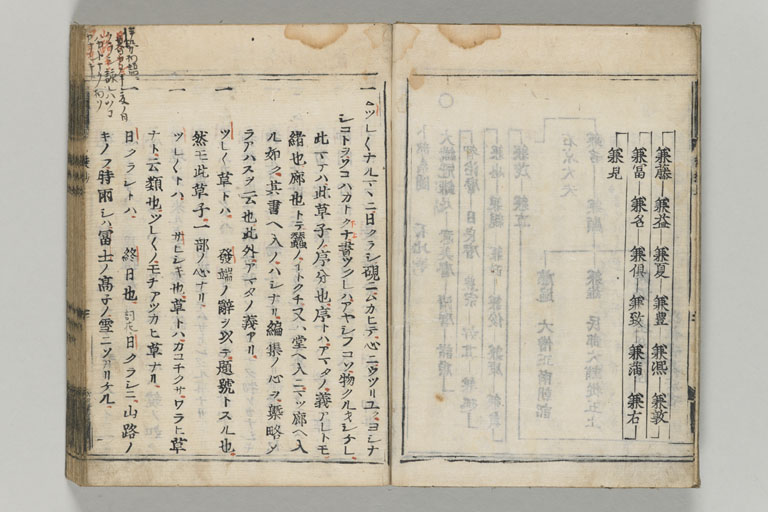 兼藤 兼益 兼夏 兼豊 兼凞 兼敦
兼冨 兼名 兼倶 兼致 兼満 兼右
兼見
一 ツレ〱ナルマヽニ日クラシ硯ニムカヒテ心ニウツリユクヨシナ
シコトヲソコハカトナク書ツクレハアヤシフコソ物クルヲシケレ
此マテハ此草子ノ序分也序トハアマタノ義アレトモ
緒也廊也トテ蠶ノイトクチ又ハ堂ヘ入ニマツ廊ヘ入
ル如ク其書ヘ入ノハシナリ編集ノ心ヲ槩略シ
ラアハスヲ云也此外アマタノ義アリ
一 ツレ〱草トハ 發端ノ辭ヲ以テ題號トスル也
然モ此草子一部ノ心ナリ
一 ツレ〱トハ サヒシキ也草トハカコチクサワラヒ草
ナト云類也ツレ〱ノモテアツカヒ草ナリ
一 日クラシトハ 終日也 日クラシニ山路ノ
キノフ時雨シハ冨士ノ高子ノ雪ニソアリケル